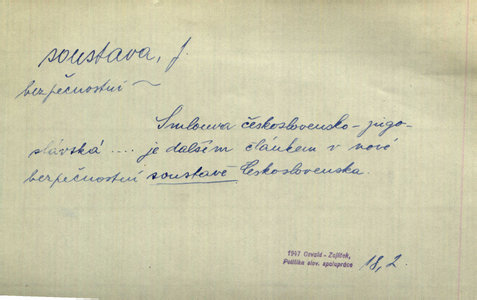 soustava, f.
bezpečnostní ~
Smlouva československo-jugo-
slávská .... je dalším článkem v nové
bezpečnostní soustavě Československa.
1947 Osvald - Zajíček,
Politika slov. spolupráce 18,2.